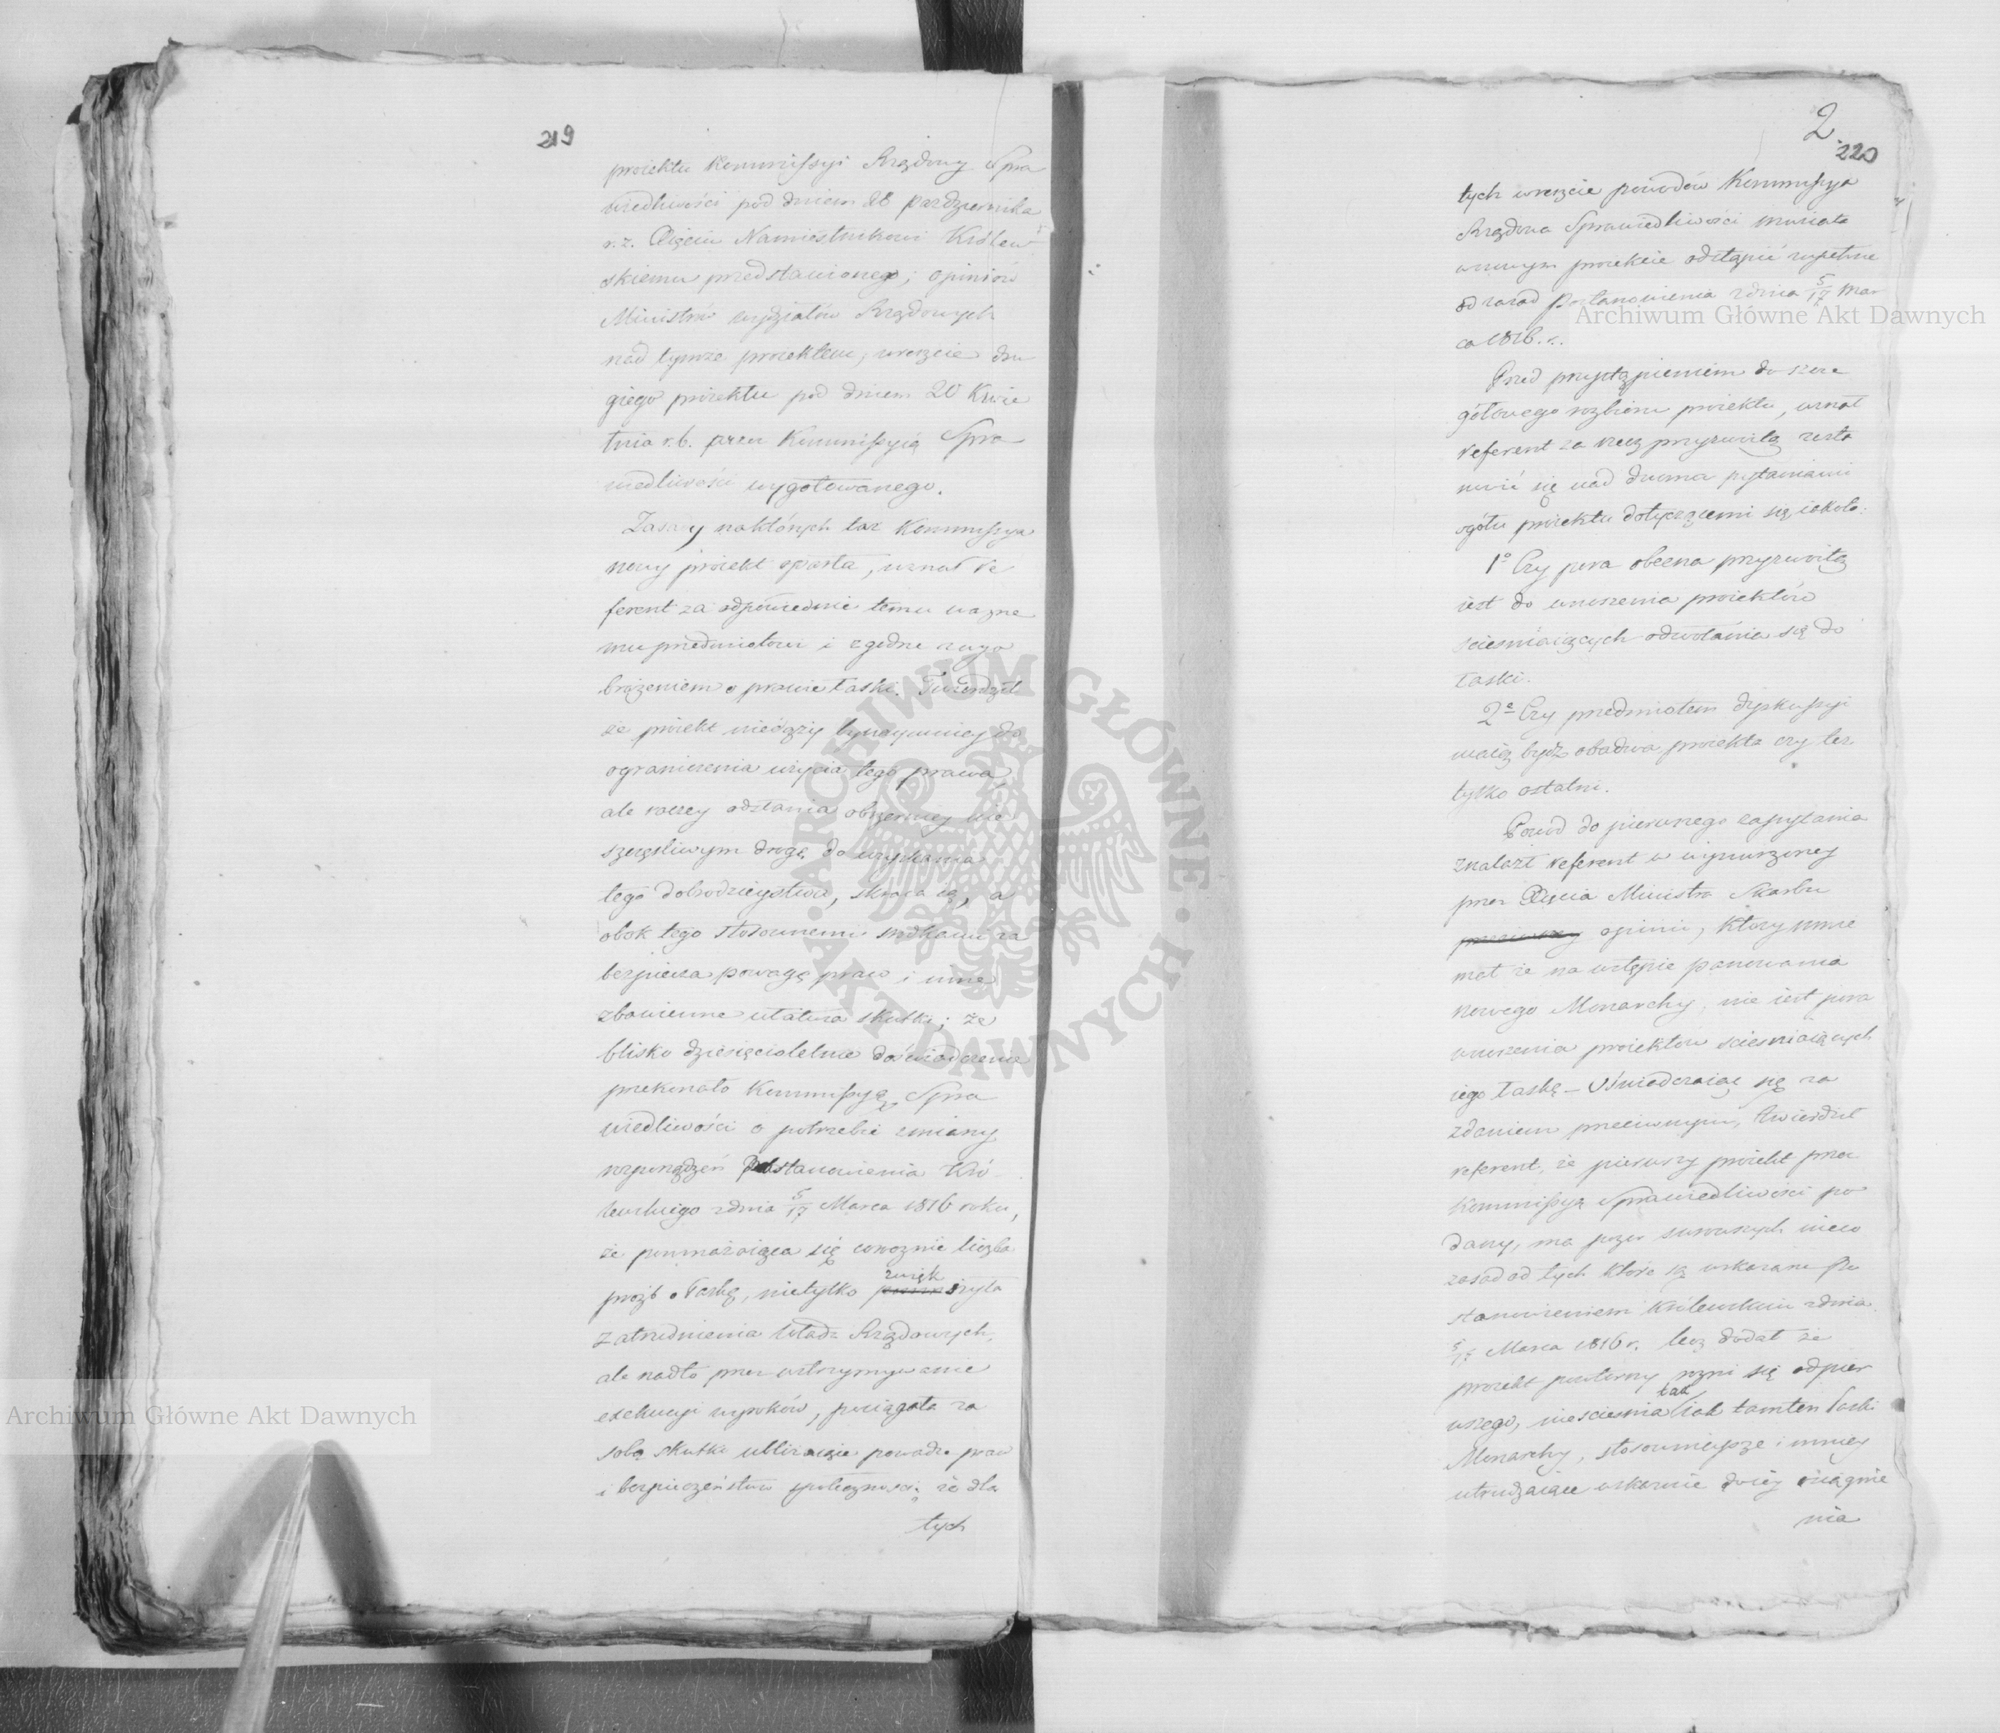 219
proiektu Kommissyi Rządowy Spra
wiedliwości pod dniem 28 Pazdziernika
r. z. Xięciu Namiestnikowi Królew
skiemu przedstawionego; opiniów
Ministrów wydziałów Rządowych
nad tymże proiektem, wreszcie dru
giego proiektu pod dniem 20 Kwie
tnia r. b. przez Kommissyią Spra
wiedliwości wygotowanego.
Zasady na których taż Kommissya
nowy proiekt oparła, uznał Re
ferent za odpowiednie temu ważne
mu przedmiotowi i zgodne z wyo
brażeniem o prawie łaski. Twierdził
że proiekt nie dąży bynaymniey do
ograniczenia użycia tego prawa,
ale raczey odsłania obszerniey nie
szczęśliwym drogę do uzyskania
tego dobrodzieystwa, skraca ią, a
obok tego stosownemi srodkami za
bezpiecza powagę praw i inne
zbawienne ułatwia skutki; że
blisko dziesięcioletnie doświadczenie
przekonało Kommissyę Spra
wiedliwości o potrzebie zmiany
rozporządzeń Postanowienia Kró-
lewskiego z dnia 5/17 Marca 1816 roku,
że pomnażaiąca się corocznie liczba
prozb o łaskę, nietylko zwięk szyła
zatrudnienia Władz Rządowych,
ale nadto przez wstrzymywanie
exekucyi wyroków, pociągała za
sobą skutki ubliżaiące powadze praw
i bezpieczeństwu społeczności, że dla
tych
2
220
tych wreszcie powodów Kommissya
Rządowa Sprawiedliwości musiała
w nowym proiekcie odstąpić zupełnie
od zasad Postanowienia z dnia 5/17 Mar
ca 1816. r.
Przed przystąpieniem do szcze
gółowego rozbioru proiektu, uznał
referent za rzecz przyzwoitą zasta
nowić się nad dwoma pytaniami
ogółu proiektu dotyczącemi się iako to:
1° Czy pora obecna przyzwoitą
iest do wnoszenia proiektów
scieśniaiących odwołania się do
łaski.
2e Czy przedmiotem dyskussyi
maią bydź obadwa proiekta czy też
tylko ostatni.
Powód do pierwszego zapytania
znalazł referent w wynurzoney
przez Xięcia Ministra Skarbu
opinii, który mnie
mał że na wstępie panowania
nowego Monarchy, nie iest pora
wnoszenia proiektów scieśniaiących
iego łaskę – Oświadczaiąc się za
zdaniem przeciwnym, twierdził
referent, że pierwszy proiekt przez
Kommissyę Sprawiedliwości po
dany, ma
zasad od tych które są wskazane Po
stanowieniem Królewskim z dnia
5/17 Marca 1816 r. lecz dodał że
proiekt powtórny rożni się od pier
wszego, nie scieśnia tak iak tamten łaski
Monarchy, stosownieysze i mniey
utrudzaiące wskazuie drogi osiągnie
nia
Archiwum Główne Akt Dawnych
Archiwum Główne Akt Dawnych
ARCHIWUM GŁÓWNE · AKT DAWNYCH ·